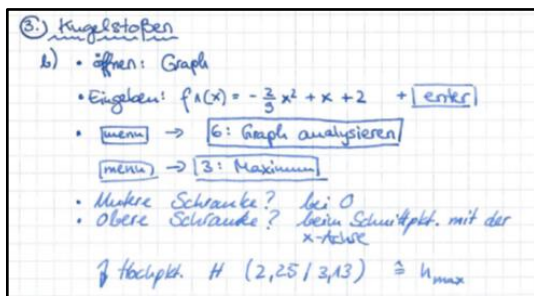 3.) Kugelstoßen
b) • öffnen: Graph
• Eingeben: f1(x) = - 2/9 x² + x + 2 + enter
• menu → 6: Graph analysieren
menu → 3: Maximum
• Untere Schranke? bei 0
• Obere Schranke? beim Schnittpkt. mit der
x-Achse
Hochpkt. H (2,25 / 3,13) ≙ hmax